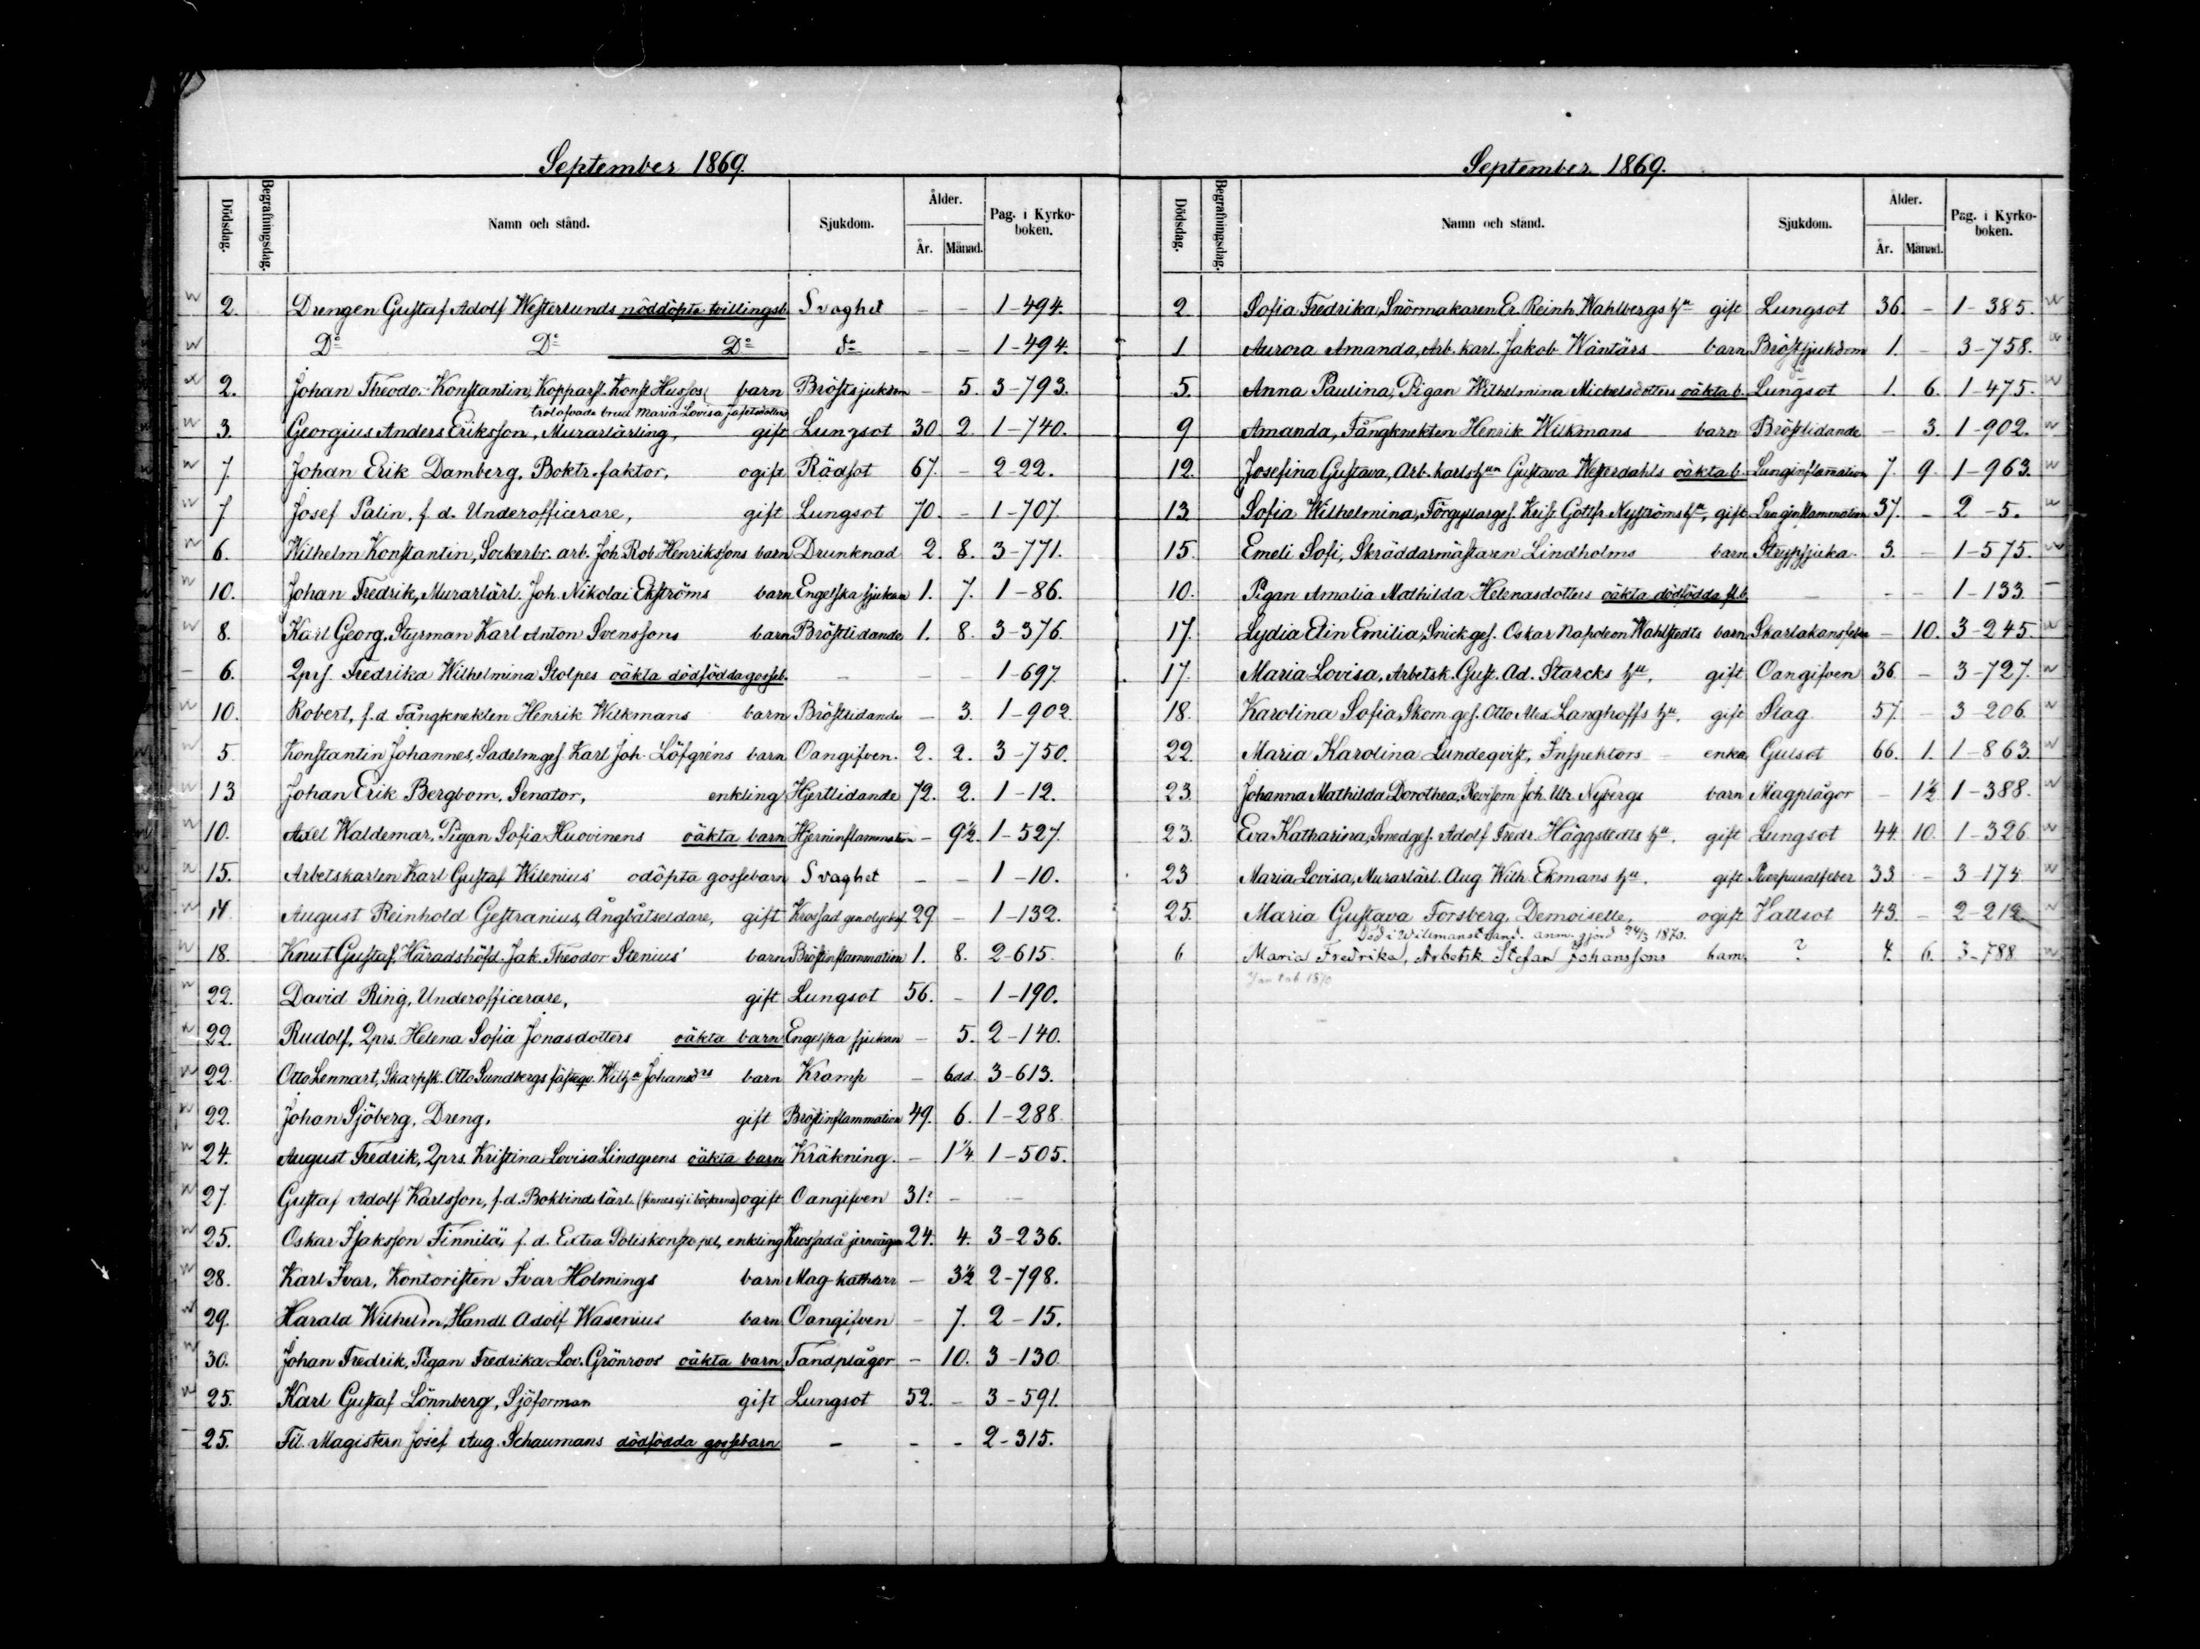 September 1869.
Dödsdag. Begrafningsdag. Namn och stånd. Sjukdom. Ålder. År. Månad. Pag. i Kyrko-boken.
2. Drengen Gustaf Adolf Westerlunds nöddöpta tvillingsb. Svaghet – – 1-494.
Do Do Do do – – 1-494.
2. Johan Theodo. Konstantin, Kopparsl. Konst. Husfos barn Bröstsjukdom – 5. 3-793.
trolofvade brud Maria Lovisa Jafetsdotter
3. Georgius Anders Eriksson, Murarlärling, gift Lungsot 30 2. 1-740.
7. Johan Erik Damberg, Boktr.faktor, ogift Rödsot 67. – 2-22.
7 Josef Palin, f. d. Underofficerare, gift Lungsot 70. – 1-707.
6. Wilhelm Konstantin, Sockerbr. arb. Joh. Rob. Henrikssons barn Drunknad 2. 8. 3-771.
10. Johan Fredrik, Murarlärl. Joh. Nikolai Ekströms barn Engelska sjukan 1. 7. 1-86.
8. Karl Georg, Styrman Karl Anton Svenssons barn Bröstlidande 1. 8. 3-376.
6. 2prs. Fredrika Wilhelmina Stolpes oäkta dödfödda gosseb. – – – 1-697.
10. Robert, f.d. Fångknekten Henrik Wilkmans barn Bröstlidande – 3. 1-902.
5 Konstantin Johannes, Sadelm.ges. Karl Joh. Löfgréns barn Oangifven. 2. 2. 3-750.
13 Johan Erik Bergbom, Senator, enkling Hjertlidande 72. 2. 1-12.
10. Axel Waldemar, Pigan Sofia Huovinens oäkta barn Hjerninflammation – 9½. 1-527.
15. Arbetskarlen Karl Gustaf Wilenius' odöpta gossebarn Svaghet – – 1-10.
14. August Reinhold Gestranius, Ångbåtseldare, gift Krossad gen. olycksf. 29. – 1-132.
18. Knut Gustaf, Häradshöfd. Jak. Theodor Stenius' barn Bröstinflammation 1. 8. 2-615.
22. David Ring, Underofficerare, gift Lungsot 56. – 1-190.
22. Rudolf, 2prs. Helena Sofia Jonasdotters oäkta barn Engelska sjukan – 5. 2-140.
22. Otto Lennart, Skarpsk. Otto Sundbergs fästeqv. Johansdrs barn Kramp – 6dd. 3-613.
22. Johan Sjöberg, Dreng, gift Bröstinflammation 49. 6. 1-288.
24. August Fredrik, 2prs. Kristina Lovisa Lindgrens oäkta barn Kräkning. – 1¼. 1-505.
27. Gustaf Adolf Karlsson, f.d. Bokbind. lärl. (finnes ej i böckerna) ogift Oangifven 31? –
25. Oskar Isaksson Finnilä, f. d. Extra Poliskonstapel, enkling Krossad å jernvägen 24. 4. 3-236.
28. Karl Ivar, Kontoristen Ivar Holmings barn Mag-katharr – 3½ 2-798.
29. Harald Wilhelm, Handl. Adolf Wasenius' barn Oangifven – 7. 2-15.
30. Johan Fredrik, Pigan Fredrika Lov. Grönroos' oäkta barn Tandplågor – 10. 3-130
25. Karl Gustaf Lönnberg, Sjöforman gift Lungsot 52. – 3-591.
25. Fil. Magistern Josef Aug. Schaumans dödfödda gossebarn – – – 2-315.
September 1869.
Dödsdag. Begrafningsdag. Namn och stånd. Sjukdom. Ålder. År. Månad. Pag. i Kyrko-boken.
2 Sofia Fredrika, Snörmakaren Er. Reinh. Wahlbergs hu gift Lungsot 36. – 1-385.
1 Aurora Amanda, Arb. karl. Jakob Wäntärs barn Bröstsjukdom 1. – 3-758.
5. Anna Paulina, Pigan Wilhelmina Michelsdotters oäkta b. Lungsot 1. 6. 1-475.
9 Amanda, Fångknekten Henrik Wilkmans barn Bröstlidande – 3. 1-902.
12. Josefina Gustava, Arb. karls Gustava Westerdahls oäkta b. Lunginflamation 7. 9. 1-963.
13 Sofia Wilhelmina, Förgyllarges. Krist. Gottfr. Nyströms hu, gift Lunginflammation 37. – 2-5.
15. Emeli Sofi, Skräddarmästaren Lindholms barn Strypsjuka 3. – 1-575.
10. Pigan Amalia Mathilda Helenasdotters oäkta dödfödda fl.b. – – – 1-133
17. Lydia Elin Emilia, Snick. ges. Oskar Napoleon Wahlstedts barn Skarlakansfeber – 10. 3-245.
17. Maria Lovisa, Arbetsk. Gust. Ad. Starcks hu, gift Oangifven 36 – 3-727.
18. Karolina Sofia, Skom. ges. Otto Alex. Langhoffs hu, gift Slag 57. – 3-206.
22. Maria Karolina Lundeqvist, Inspektors enka Gulsot 66. 1. 1-863
23. Johanna Mathilda Dorothea, Revisorn Joh. Ulr. Nybergs barn Magplågor – 1½ 1-388.
23. Eva Katharina, Smedges. Adolf Fredr. Häggstedts hu. gift Lungsot 44. 10. 1-326
23 Maria Lovisa, Murarlärl. Aug. Wilh. Ekmans hu. gift Puerpuralfeber 33. – 3-174.
25. Maria Gustava Forsberg, Demoiselle, ogift Vattsot 43. – 2-212
Död i Willmanstrand. anm. gjord 24/3 1870.
6 Maria Fredrika, Arbetsk. Stefan Johanssons barn ? 4. 6. 3-788
1870